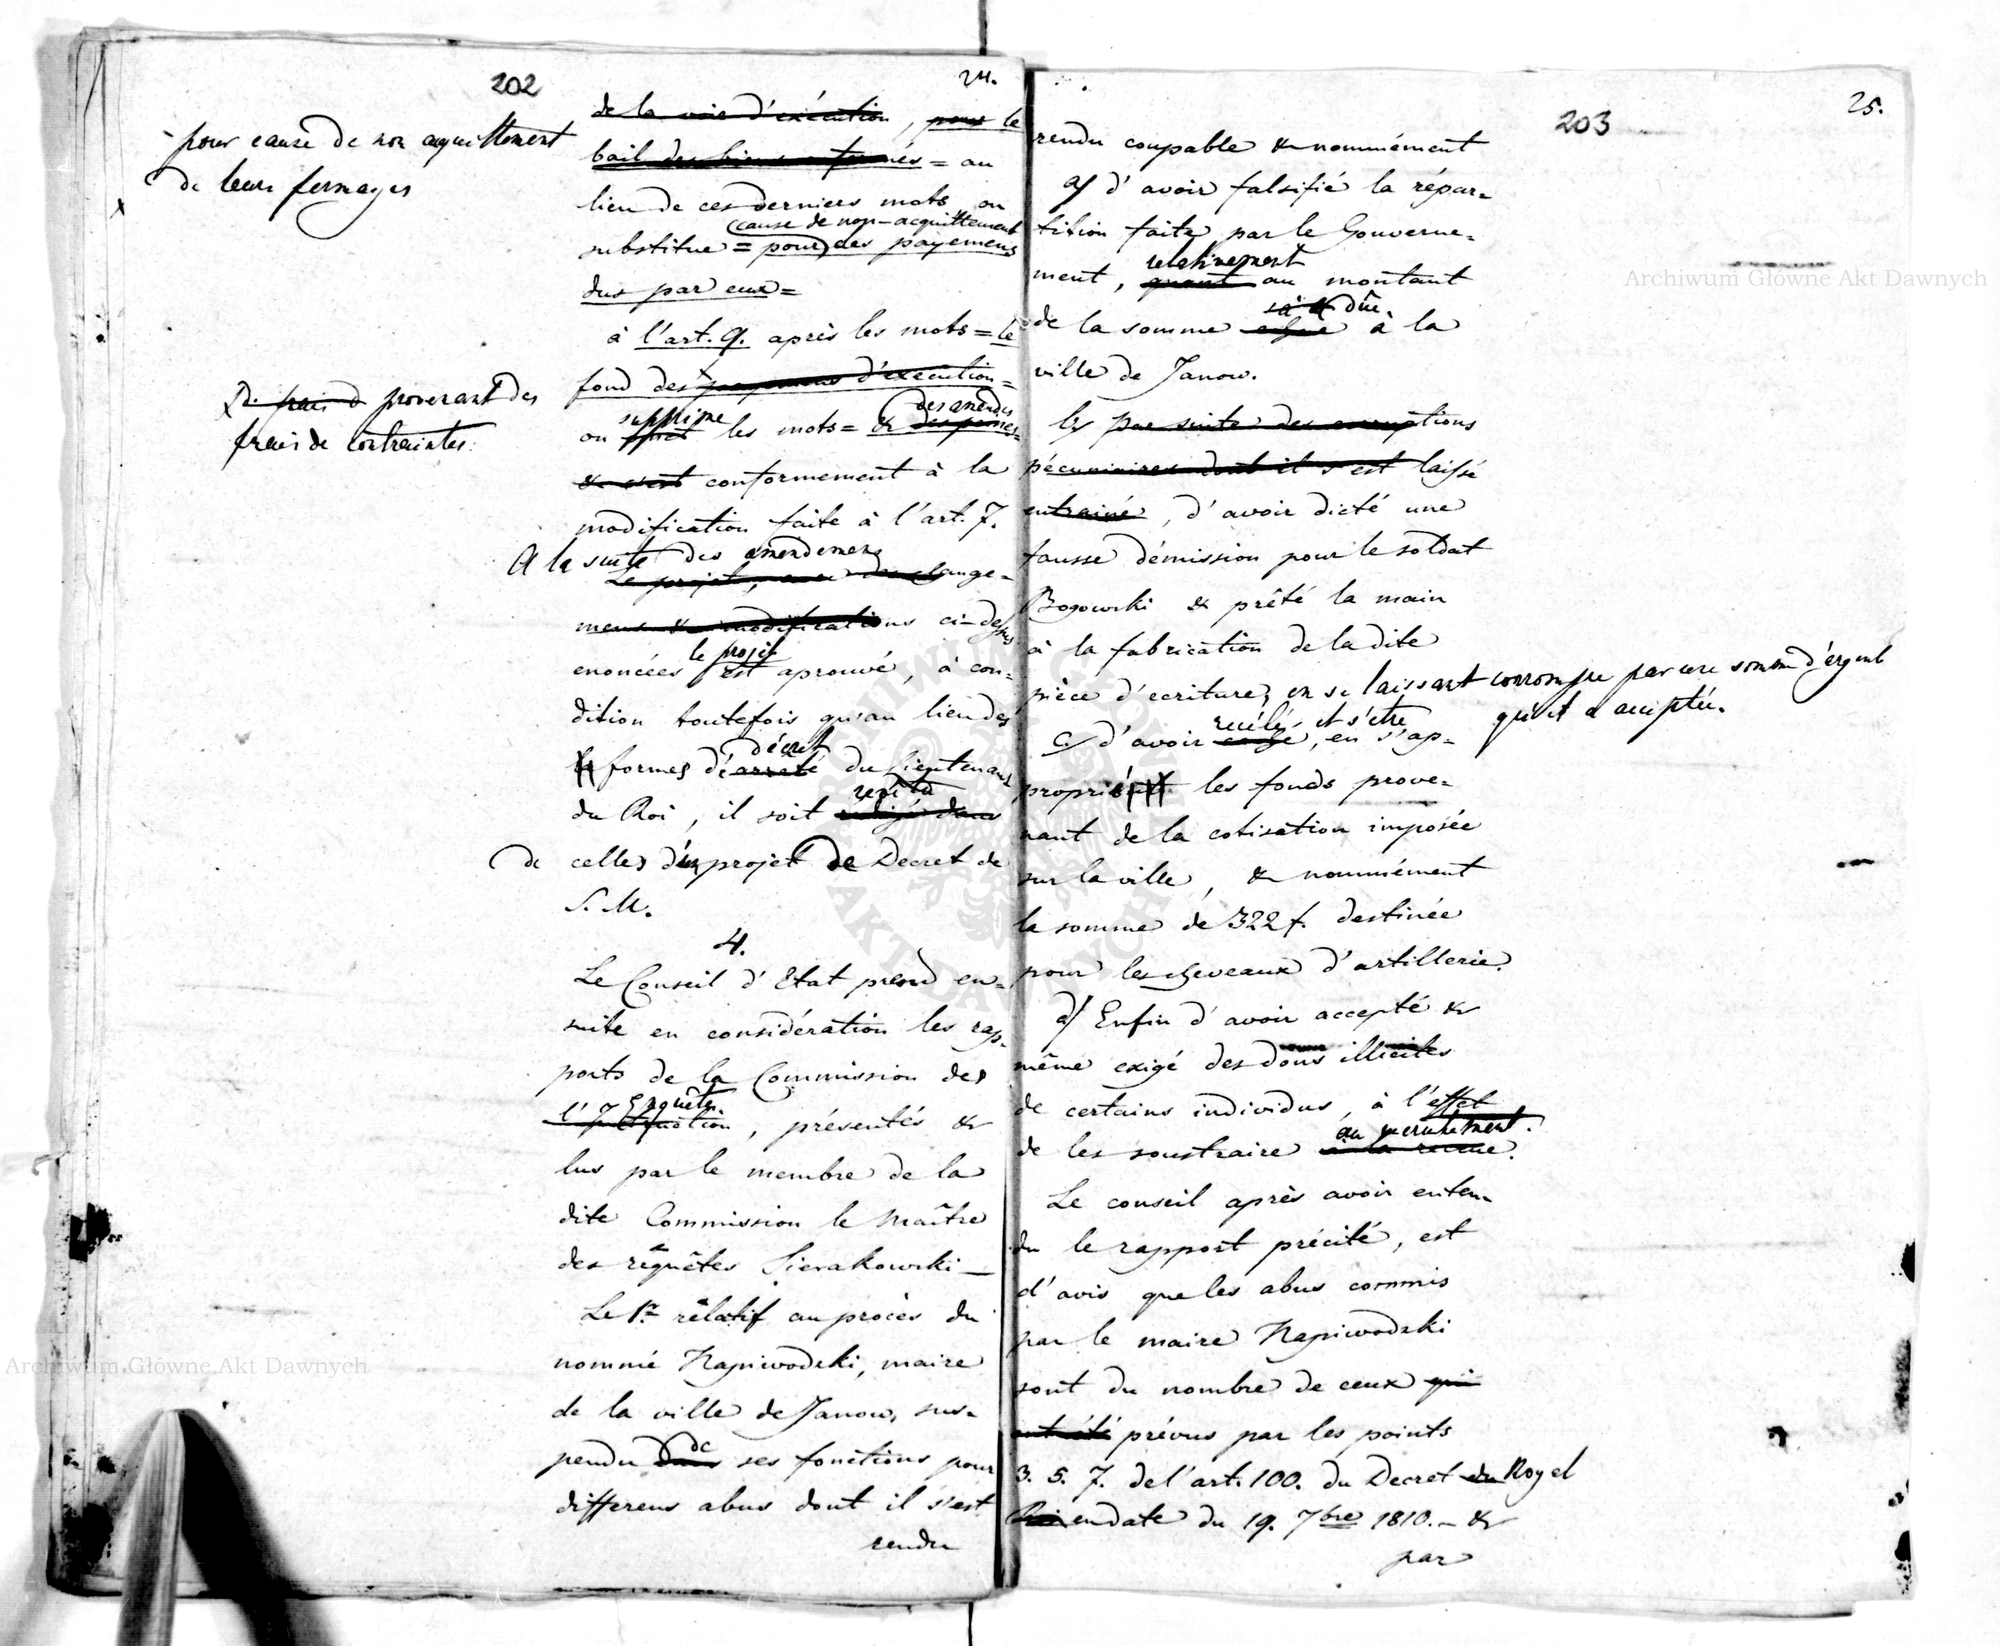 202
24.
pour cause de non acquittement
de leurs fermages
de la voie d'exécution, pour le
bail des biens affermés = au
lieu de ces derniers mots, on
cause de non-acquittement
substitue = pour des payemens
dus par eux =
à l'art. 9. après les mots = le
fond des payemens d'execution =
x de frais d provenant des
frais de contraintes.
supprime
des amendes
on met les mots = & des peines =
& c'est conformement à la
modification faite à l'art. 7.
A la suite des amendemens
Le projet, avec des change-
mens & modifications ci-dessus
le projet
enoncées est aprouvé, à con-
dition toutefois qu'au lieu des
décret
formes d'arreté du Lieutenant
revêtu
du Roi, il soit redigé dans
de celles d'un projet de Decret de
S. M.
4.
Le Conseil d'Etat prend en-
suite en considération les rap-
ports de la Commission des
Enquêtes
l'Instruction, présentés &
lus par le membre de la
dite Commission le Maître
des rêquêtes Sierakowski —
Le 1r rélatif au procès du
nommé Kapiwodzki, maire
de la ville de Janow, sus-
de
pendu dans ses fonctions pour
differens abus dont il s'est
rendu
203
25.
rendu coupable & nommément
a) d'avoir falsifié la répar-
tition faite par le Gouverne-
relativement
ment, quant au montant
dûe
de la somme à la
ville de Janow.
b) par suite des corruptions
pécuniaires dont il s'est laissé
entrainé, d'avoir dicté une
fausse démission pour le soldat
Bogowski & prêté la main
à la fabrication de la dite
pièce d'ecriture, en se laissant corrompre par une somme d'argent
qu'il a acceptée.
recélé et s'être
c) d'avoir, en s'ap-
proprié les fonds prove-
nant de la cotisation imposée
sur la ville, & nommément
la somme de 322 f. destinée
pour les cheveaux d'artillerie.
d) Enfin d'avoir accepté &
même exigé des dons illicites
de certains individus, à l'effet
au recrutement.
de les soustraire à la recrue.
Le conseil après avoir enten-
du le rapport précité, est
d'avis que les abus commis
par le maire Kapiwodzki
sont du nombre de ceux qui
ont été prévus par les points
3. 5. 7. de l'art. 100. du Decret du Royal
Roi en date du 19. 7bre 1810. - &
par
Archiwum Główne Akt Dawnych
Archiwum Główne Akt Dawnych
ARCHIWUM GŁÓWNE AKT DAWNYCH